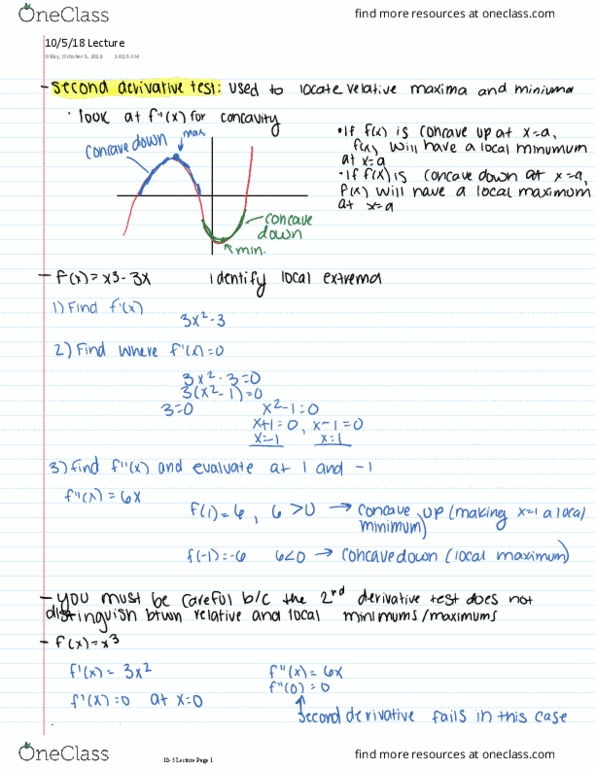 OneClass
find more resources at oneclass.com
10/5/18 Lecture
Friday, October 5, 2018 10:15 AM
- second derivative test: used to locate relative maxima and minimum
· look at f"(x) for concavity
concave down
max
concave down
min.
• If f(x) is concave up at x=a,
f(x) will have a local minumum
at x=a
• If f(x) is concave down at x=a,
f(x) will have a local maximum
at x=a
- f(x)=x3-3x identify local extrema
1) Find f'(x)
3x²-3
2) Find where f'(x)=0
3x²-3=0
3(x²-1)=0
3=0 x²-1=0
x+1=0, x-1=0
x=-1 x=1
3) find f"(x) and evaluate at 1 and -1
f"(x)=6x
f(1)=6, 6>0 → concave up (making x=1 a local
minimum)
f(-1)=-6 6<0 → concave down (local maximum)
- you must be careful b/c the 2rd derivative test does not
distinguish btwn relative and local minimums/maximums
- f(x)=x³
f'(x)= 3x²
f'(x)=0 at x=0
f"(x)=6x
f"(0)=0
second derivative fails in this case
OneClass
10-5 Lecture Page 1
find more resources at oneclass.com